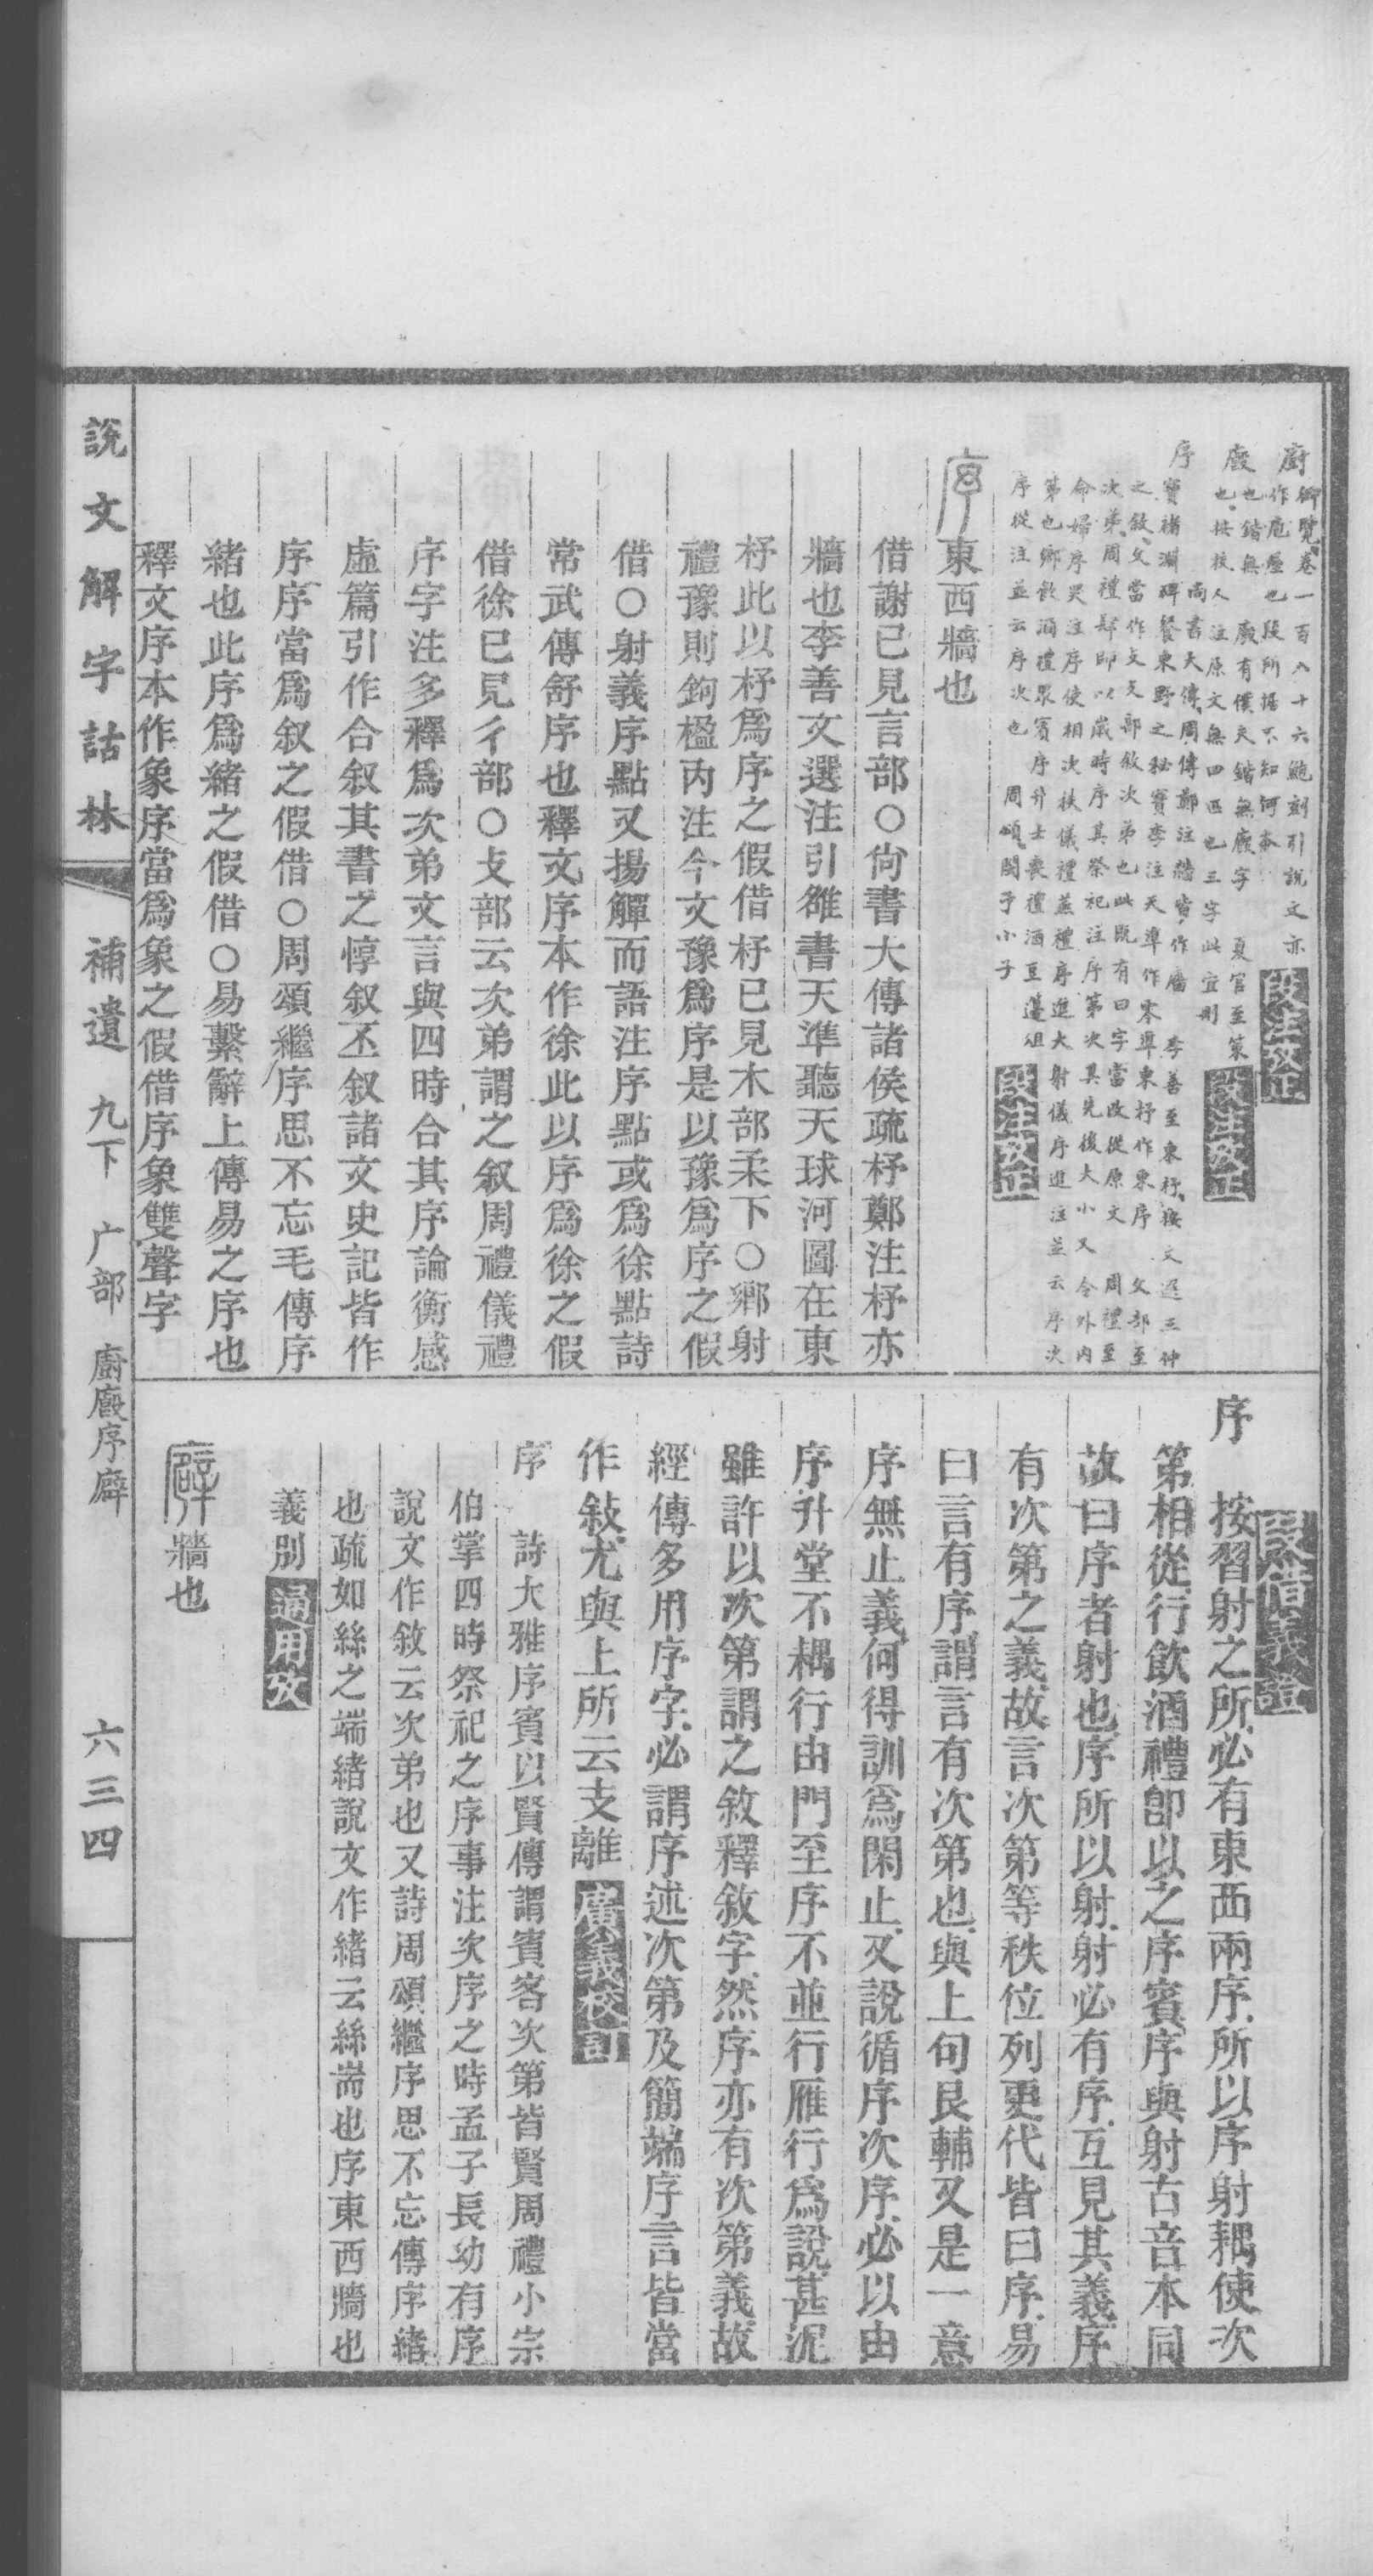 廚
御覽卷一百八十六鮑刻引說文亦
作庖屋也段所據不知何本
段注攷正
廏
夏官至策
也鍇無廏有僕夫鍇無廏字
也按校人注原文無四匹也三字此宜刪
段注攷正
序
尚書大傳周傳鄭注牆皆作廧
李善至東杼按文選王仲
寶褚淵碑餐東野之秘寶李注天準作宋準東杼作東序
攵部至
之敘攵當作攴攴部敘次弟也此既有曰字當改從原文
周禮至
次弟周禮肆師以歲時序其祭祀注序第次其先後大小又
今外內
命婦序哭注序使相次秩儀禮燕禮序進大射儀序進注並云序次
第也鄉飲酒禮眾賓序升士喪禮酒豆籩俎
序從注並云序次也
周頌閔予小子
段注攷正
序東西牆也
借謝已見言部○尙書大傳諸侯疏杼鄭注杼亦
牆也李善文選注引雒書天準聽天球河圖在東
杼此以杼爲序之假借杼已見木部柔下○鄉射
禮豫則鉤楹內注今文豫爲序是以豫爲序之假
借○射義序點又揚觶而語注序點或爲徐點詩
常武傳舒序也釋文序本作徐此以序爲徐之假
借徐已見彳部○攴部云次弟謂之叙周禮儀禮
序字注多釋爲次弟文言與四時合其序論衡感
虛篇引作合叙其書之惇叙丕叙諸文史記皆作
序序當爲叙之假借○周頌繼序思不忘毛傳序
緒也此序爲緒之假借○易繫辭上傳易之序也
釋文序本作象序當爲象之假借序象雙聲字
段借義證
序
按習射之所必有東西兩序所以序射耦使次
第相從行飲酒禮卽以之序賓序與射古音本同
故曰序者射也序所以射射必有序互見其義序
有次第之義故言次第等秩位列更代皆曰序易
曰言有序謂言有次第也與上句艮輔又是一意
序無止義何得訓爲閑止又說循序次序必以由
序升堂不耦行由門至序不並行雁行爲說甚泥
雖許以次第謂之敘釋敘字然序亦有次第義故
經傳多用序字必謂序述次第及簡端序言皆當
作敍尤與上所云支離
廣義校訂
序
詩大雅序賓以賢傳謂賓客次第皆賢周禮小宗
伯掌四時祭祀之序事注次序之時孟子長幼有序
說文作敘云次弟也又詩周頌繼序思不忘傳序緒
也疏如絲之端緒說文作緒云絲耑也序東西牆也
義別
通用攷
廦牆也
說文解字詁林
補遺
九下
广部
廚廏序廦
六三四